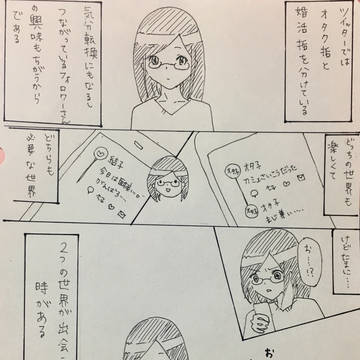 ツイッターでは
オタク垢と
婚活垢を分けている
気分転換にもなるし
つながっているフォロワーさん
の興味もちがうから
である
どっちの世界も
楽しくて
どちらも
必要な世界
結子
今日は
がんばろう…
オタ子
カミュさいこうだった
オタ子
けどたまに…
お…!?
2つの世界が出会う
時がある